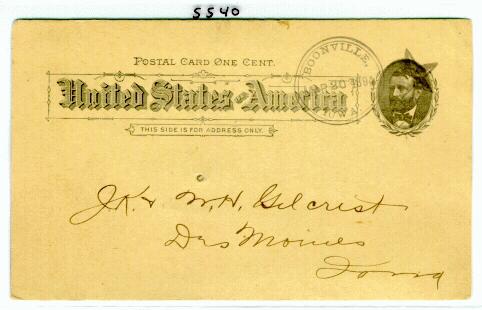 5540
POSTAL CARD ONE CENT.
United States of America
THIS SIDE IS FOR ADDRESS ONLY.
BOONVILLE,
20
IOWA
J.K. & W.H. Gilcrist
Des Moines
Iowa